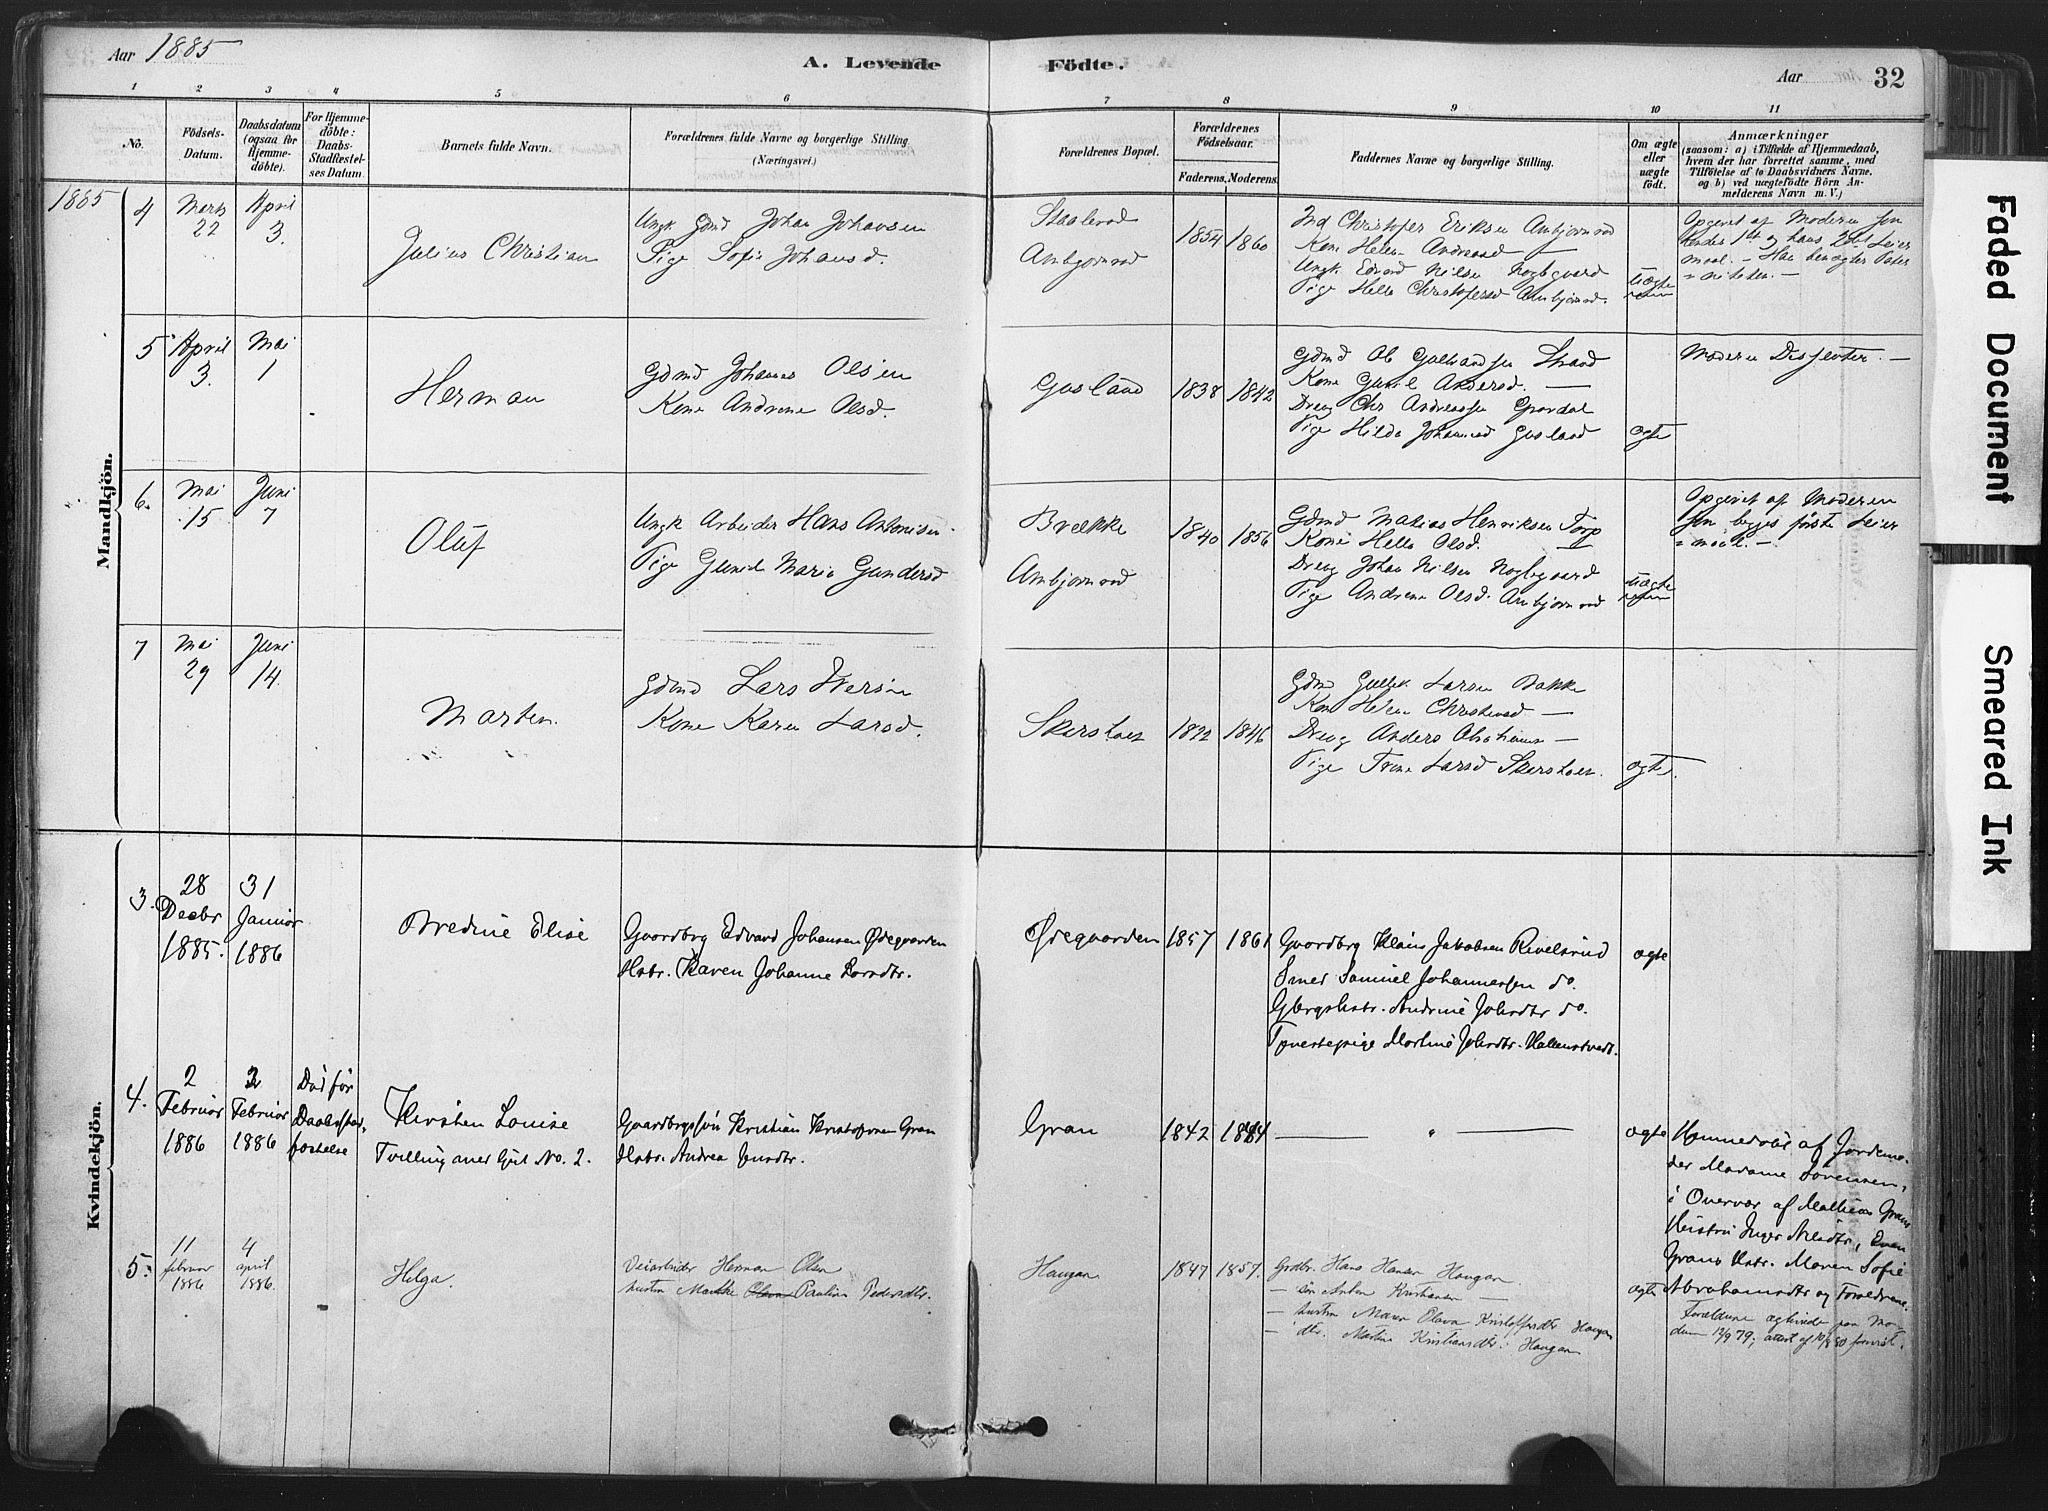 Aar 1885
A. Levende Födte.
Aar 32
1 2 3 4 5 6 7 8 9 10 11
No.
Födsels-
Datum.
Daabsdatum
(ogsaa for
Hjemme-
döbte).
For Hjemme-
döbte:
Daabs-
Stadfæstel-
ses Datum.
Barnets fulde Navn.
Forældrenes fulde Navne og borgerlige Stilling.
(Næringsvei.)
Forældrenes Bopæl.
Forældrenes
Födselsaar.
Faderens. Moderens.
Faddernes Navne og borgerlige Stilling.
Om ægte
eller
uægte
födt.
Anmærkninger
(saasom: a) i Tilfælde af Hjemmedaab,
hvem der har forrettet samme, med
Tilföielse af to Daabsvidners Navne.
og b) ved uægtefödte Börn An-
melderens Navn m. V.)
Mandkjön.
1885
4
Marts
22
April
3.
Julius Christian
Ungk Gdmd Johan Johansen
Pige Sofie Johansd.
Ambjørnrød
1854 1860
Ind Christofer Eriksen Ambjørnrød
Kone Helene Andreasd —
Ungk Edvard Nilsen Nogbgaard
Pige Helle Christofersd Ambjørnrød.
uægte
Opgivet af Moderen
hendes 1ste og hans 2det Leier
maal. — Han benægter Pater
= niteten. —
5
April
3.
Mai
1
Herman
Gdmd Johannes Olsen
Kone Andrine Olsd.
Gusland
1838 1842
Gdmd Ole
Kone Gunil Andersd. —
Dreng Chr Andreassen
Pige Hilda Johannesd Gusland
ægte
Moderen Dissenter. —
6.
Mai
15
Juni
7
Oluf
Ungk Arbeider Hans Antonisen
Pige Gunil Maria Gundersd
Brække
Ambjørnrød
1840 1856
Gdmd Matias Henriksen Torp
Kone Helle Olsd.
Dreng Johan Nilsen Nogbgaard
Pige Andrine Olsd. Ambjørnrød
uægte
Opgivet af Moderen
som begges første Leier
= maal. —
7
Mai
29
Juni
14.
Marten.
Gdmd Lars Iversen
Kone Karen Larsd.
1846
Gdmd Gullik Larsen Bakke
Kone Helene —
Dreng Anders —
Pige Trine Larsd
ægte.
Kvindekjön.
3.
28
Decbr
1885.
31
Januar
1886
Bredine Elise
Gaardbrg Edvard Johansen Ødegaarden
Hstr. Karen Johanne
Ødegaarden
1857 1861
Gaardbrg Klaus Jakobsen Rivelsrud
Smed Samuel Johannessen do.
Gbrgshstr. Andrine Johsdtr do.
Tjenestepige Martine Johsdtr. Hallenstvedt.
ægte
4.
2
Februar
1886
2
Februar
1886
Død før
Daabsstad-
fæstelse
Kirsten Louise
Tvilling med Gut No. 2.
Gaardbrgssøn Kristian Kristofersen Gran
Hstr. Andrea Jensdtr.
Gran
1842 1844
— " —
ægte
Hjemmedøbt af Jordemo-
der Madame Sørensen,
i Overvær af Mathias Grans
Hustru Inger Nilsdtr, Even
Grans Hstr. Maren Sofie
Abrahamsdtr og Forældrene.
5.
11
februar
1886
4
april
1886.
Helga.
Veiarbeider Herman Olsen
hustru Marthe Olava Pauline Pedersdtr.
Haugan
1847 1857.
Grdbr. Hans Hansen Haugan.
— søn Anton Kristiansen —
— hustru Maren Olava Kristoffersdtr Haugan
— dtr. Martine Kristiansdtr. Haugan
ægte
Forældrene ægteviede paa Mo-
dum 13/9 79, attest af 10/8 80 forevist.
Faded Document
Smeared Ink